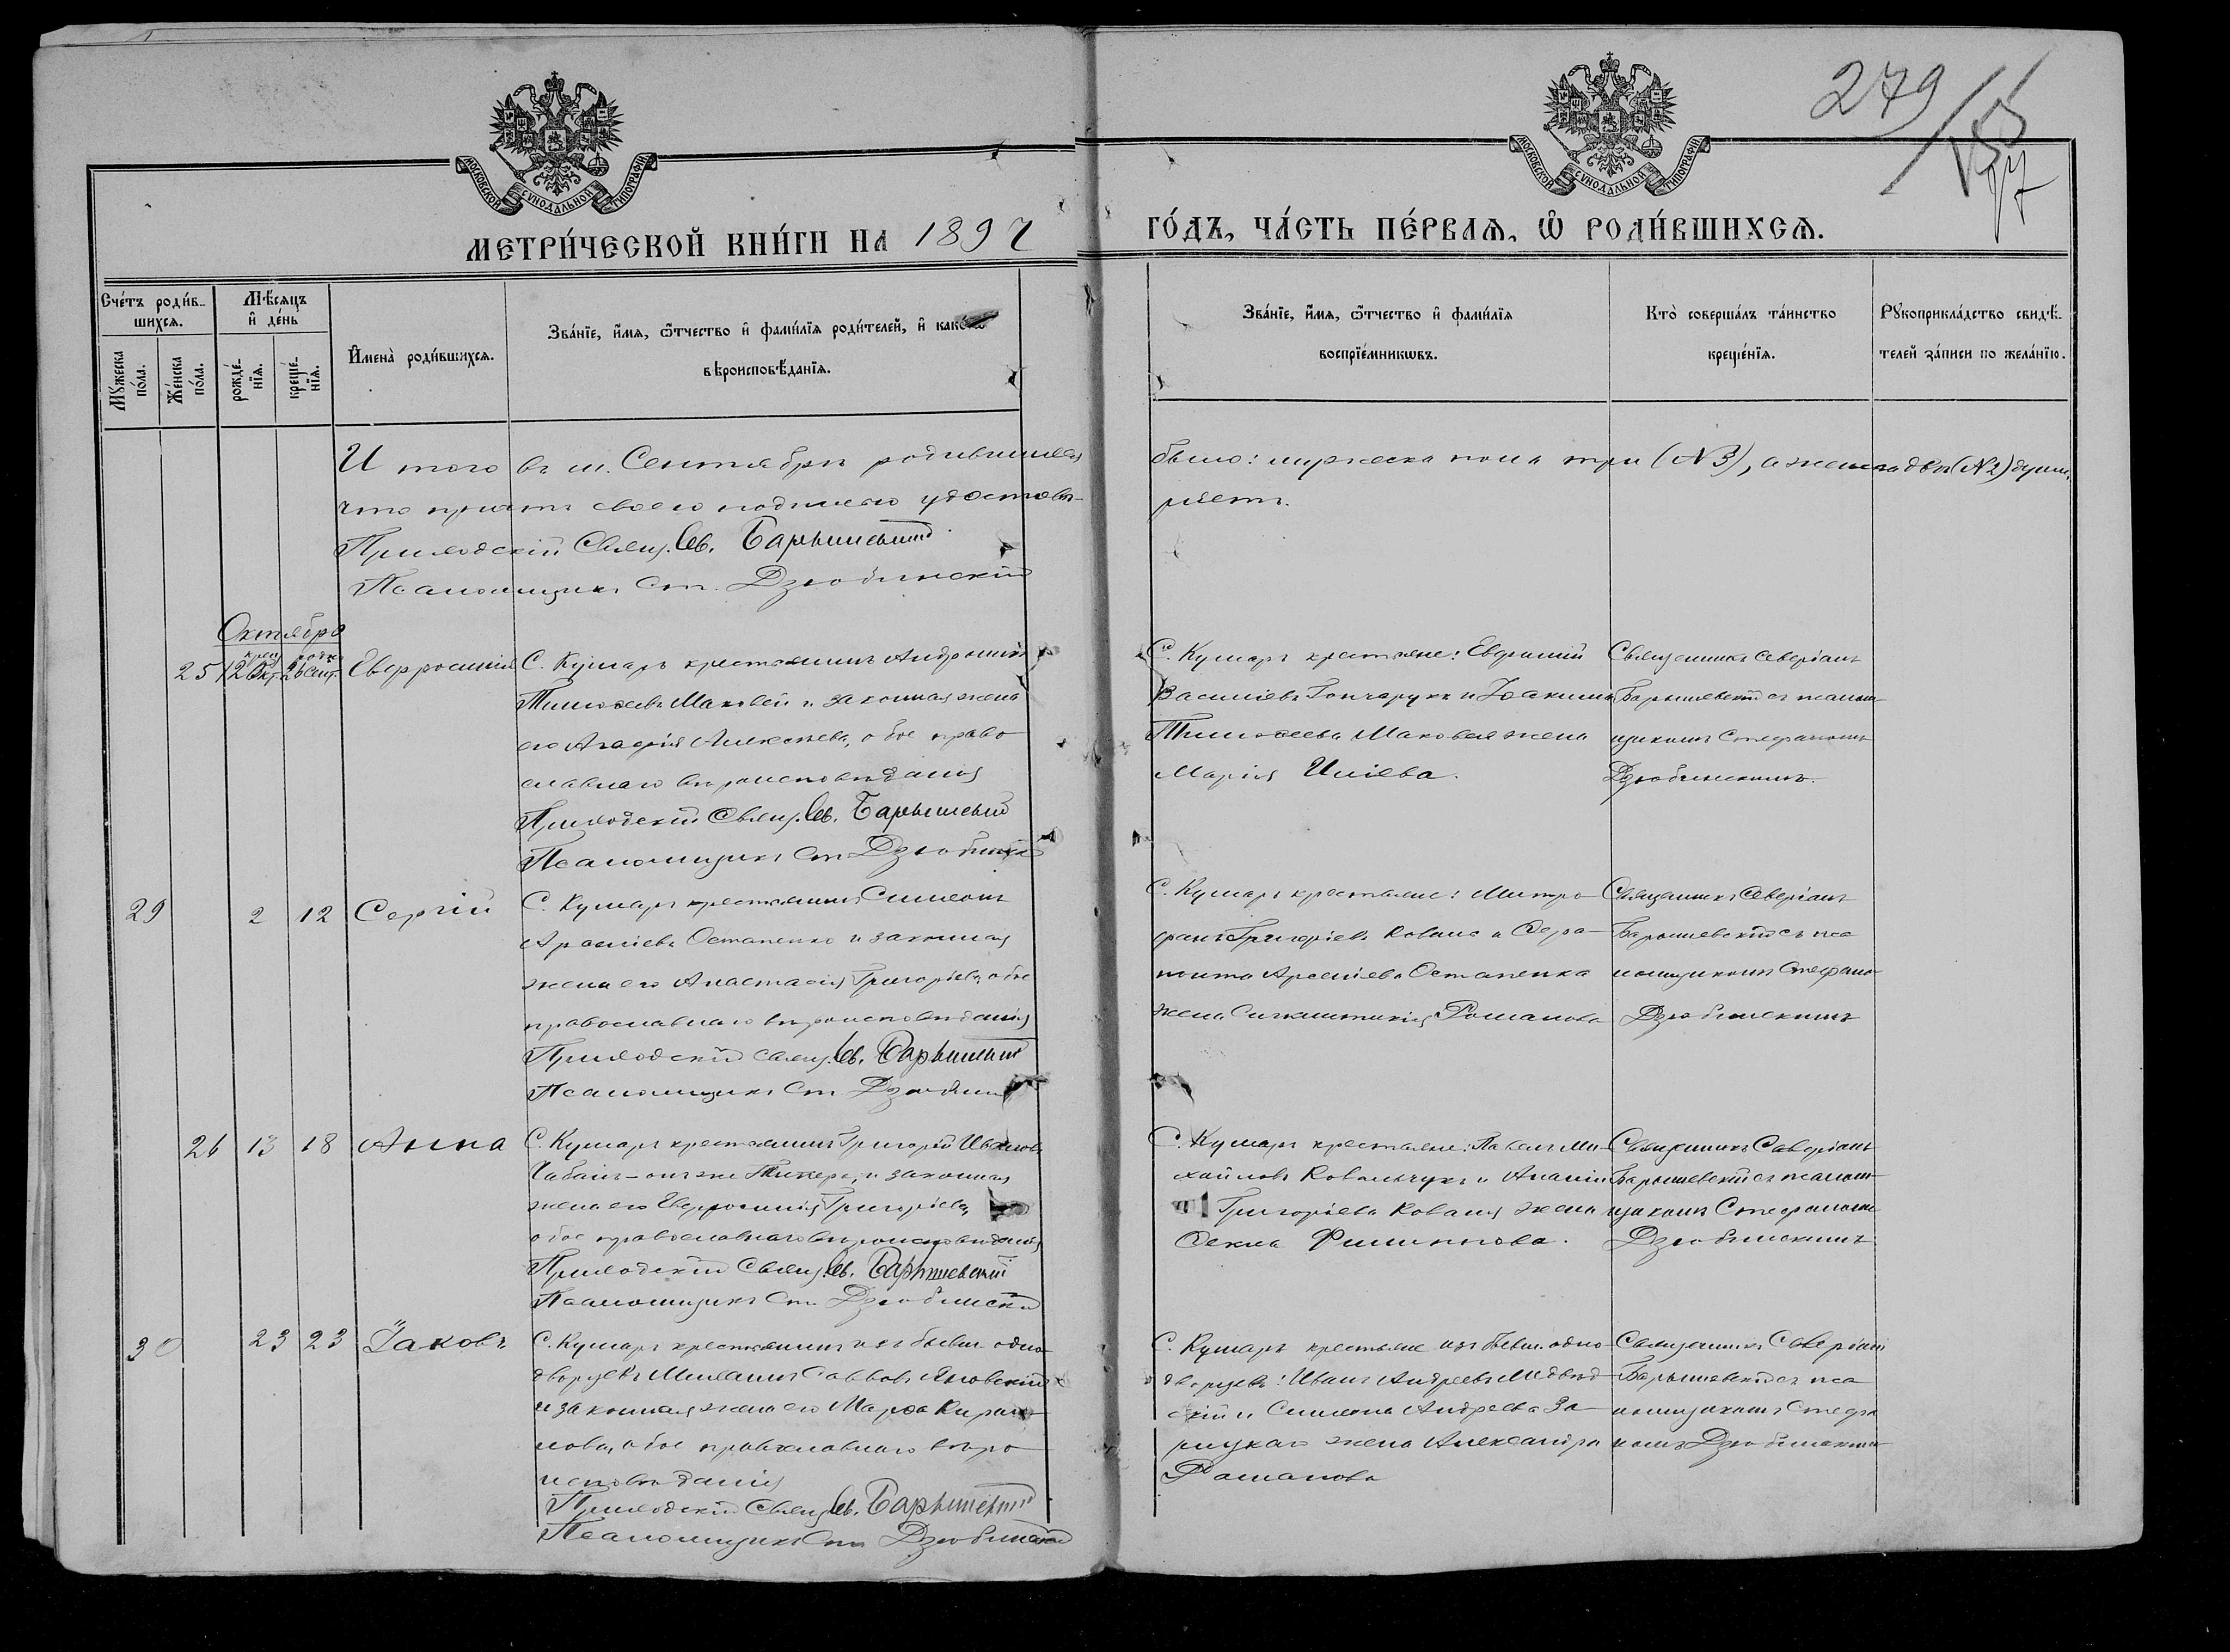 279
155
97
МОСКОВСКОЙ СѴНОДАЛЬНОЙ ТИПОГРАФІИ
МОСКОВСКОЙ СѴНОДАЛЬНОЙ ТИПОГРАФІИ
МЕТРИ́ЧЕСКОЙ КНИ́ГИ НА 1897
ГО́ДЪ, ЧА́СТЬ ПЕ́РВАѦ, Ѡ҆ РОДИ́ВШИХСѦ.
Сче́тъ роди́в-
шихсѧ.
Мꙋ́жеска
по́ла.
Же́нска
по́ла.
Мѣ́сѧцъ
и҆ де́нь
рожде́-
нїѧ.
креще́-
нїѧ.
И҆мена̀ роди́вшихсѧ.
Зва́нїе, и҆́мѧ, ѻ҆́тчество и҆ фами́лїѧ роди́телей, и҆
вѣроисповѣ́данїѧ.
Зва́нїе, и҆́мѧ, ѻ҆́тчество и҆ фами́лїѧ
воспрїе́мникѡвъ.
Кто̀ соверша́лъ та́инство
креще́нїѧ.
Рꙋкоприкла́дство свидѣ́-
телей за́писи по жела́нїю.
И того въ м. Сентябрѣ родившихся
что причтъ своею подписью удостовѣ-
Приходскій Свящ. Сев. Барышевскій
Псаломщикъ Ст. Дзюбинскій
было: мужеска пола три (№3), а женска двѣ (№2) души,
ряетъ.
Октябрь
25 12 Окт. 26 Сент. Евфросинія
С. Кумаръ крестьянинъ Андроникъ
Тимоѳеевъ Маковей и законная жена
его Агафія Алексѣева, обое право
славнаго вѣроисповѣданія
Приходскій Свящ. Сев. Барышевскій
Псаломщикъ Ст. Дзюбинскій
С. Кумаръ крестьяне: Евфимій
Василіевъ Гончарукъ и Іоакима
Тимоѳеева Маковея жена
Марія Иліева.
Священникъ Северіанъ
Барышевскій съ псалом-
щикомъ Стефаномъ
Дзюбинскимъ.
29 2 12 Сергій
С. Кумаръ крестьянинъ Симеонъ
Арсеніевъ Остапенко и законная
жена его Анастасія Григоріева, обое
православнаго вѣроисповѣданія
Приходскій Свящ. Сев. Барышевскій
Псаломщикъ Ст. Дзюбинскій
С. Кумаръ крестьяне: Митро-
фанъ Григоріевъ Коваль и Ѳера-
понта Арсеніева Остапенка
жена Романова
Священникъ Северіанъ
Барышевскій съ пса
ломщикомъ Стефано-
Дзюбинскимъ
26 13 18 Анна
С. Кумаръ крестьянинъ Григорій Ивановъ
Чабанъ-онъ же и законная
жена его Евфросинія Григоріева,
обое православнаго вѣроисповѣданія
Приходскій Свящ. Сев. Барышевскій
Псаломщикъ Ст. Дзюбинскій
С. Кумаръ крестьяне: Павелъ Ми-
хайловъ Ковальчукъ и Ананіи
Григоріева Коваля жена
Ѳекла Филиппова.
Священникъ Северіанъ
Барышевскій съ псалом-
щикомъ Стефаномъ
Дзюбинскимъ
30 23 23 Іаковъ
С. Кумаръ крестьянинъ изъ бывш. одно-
дворцевъ Михаилъ Саввовъ Яновскій
и законная жена его Марѳа Кирил-
лова, обое православнаго вѣро
исповѣданія
Приходскій Свящ. Сев. Барышевскій
Псаломщикъ Ст. Дзюбинскій
С. Кумаръ крестьяне изъ бывш. одно-
дворцевъ: Иванъ Андреевъ Медвѣд-
скій и Симеона Андреева За-
рицкаго жена Александра
Романова
Священникъ Северіанъ
Барышевскій съ пса
ломщикомъ Стефа
номъ Дзюбинскимъ